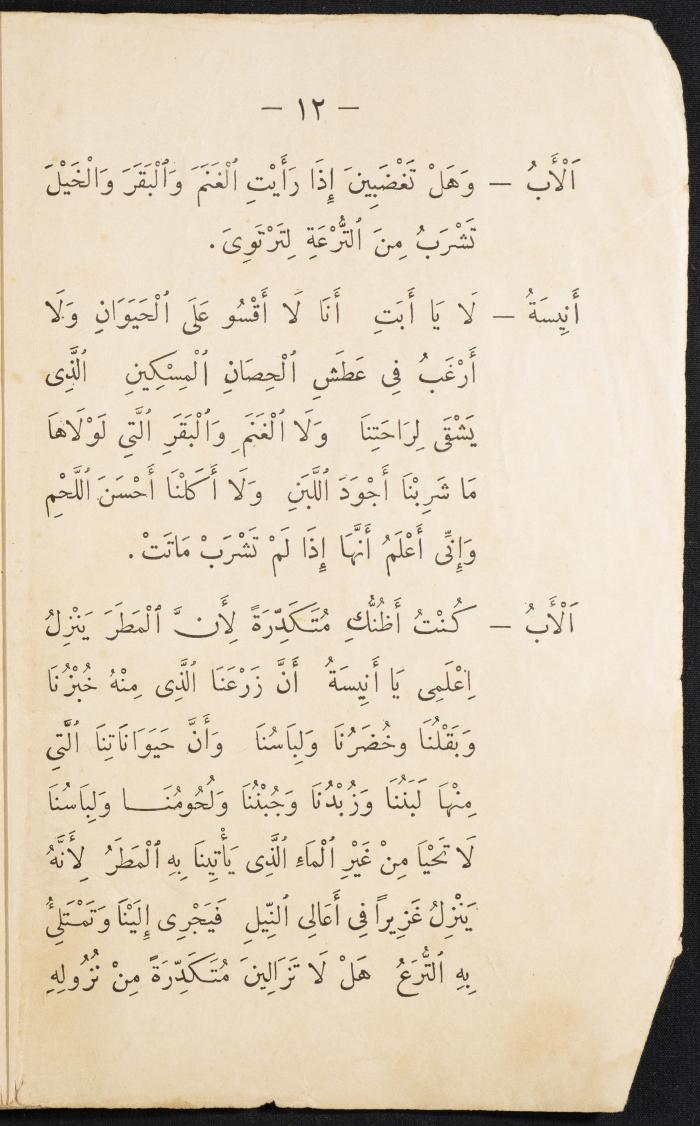 — ١٢ —
اَلْأَبُ — وَهَلْ تَغْضَبِينَ إِذَا رَأَيْتِ ٱلْغَنَمَ وَٱلْبَقَرَ وَالْخَيْلَ
تَشْرَبُ مِنَ ٱلتُّرْعَةِ لِتَرْتَوِىَ .
أَنِيسَةُ — لَا يَا أَبَتِ أَنَا لَا أَقْسُو عَلَى ٱلْحَيَوَانِ وَلَا
أَرْغَبُ فِى عَطَشِ ٱلْحِصَانِ ٱلْمِسْكِينِ ٱلَّذِى
يَشْقَى لِرَاحَتِنَا وَلَا ٱلْغَنَمِ وَٱلْبَقَرِ ٱلَّتِي لَوْلَاهَا
مَا شَرِبْنَا أَجْوَدَ اللَّبَنِ وَلَا أَكَلْنَا أَحْسَنَ اللَّحْمِ
وَإِنِّى أَعْلَمُ أَنَّهَا إِذَا لَمْ تَشْرَبْ مَاتَتْ .
اَلْأَبُ — كُنْتُ أَظُنُّكِ مُتَكَدِّرَةً لِأَنَّ ٱلْمَطَرَ يَنْزِلُ
اِعْلَمِى يَا أَنِيسَةُ أَنَّ زَرْعَنَا ٱلَّذِى مِنْهُ خُبْزُنَا
وَبَقْلُنَا وخُضَرُنَا وَلِبَاسُنَا وَأَنَّ حَيَوَانَاتِنَا ٱلَّتِي
مِنْهَا لَبَنُنَا وَزُبْدُنَا وَجُبْنُنَا وَلُحُومُنَـــا وَلِبَاسُنَا
لَا تَحْيَا مِنْ غَيْرِ ٱلْمَاءِ ٱلَّذِى يَأْتِينَا بِهِ ٱلْمَطَرُ لِأَنَّهُ
يَنْزِلُ غَزِيراً فِى أَعَالِى ٱلنِّيلِ فَيَجْرِى إِلَيْنَا وَتَمْتَلِئُ
بِهِ ٱلتُّرَعُ هَلْ لَا تَزَالِينَ مُتَكَدِّرَةً مِنْ نُزُولِهِ